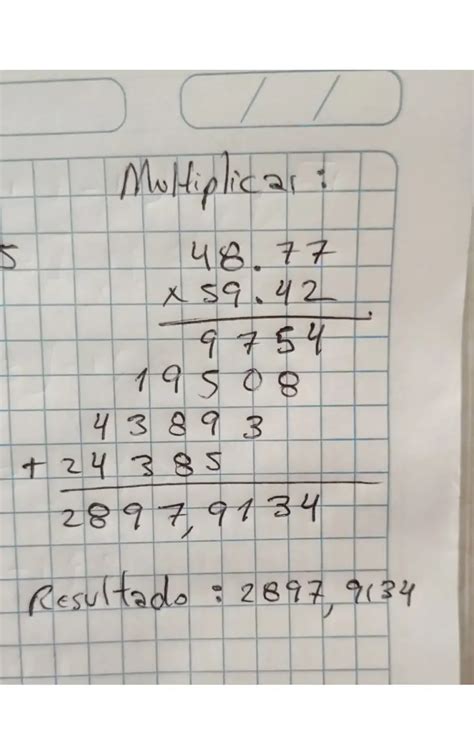 Multiplicar :
5
48.77
x 59.42
9754
19508
43893
+ 24385
2897,9134
Resultado : 2897,9134